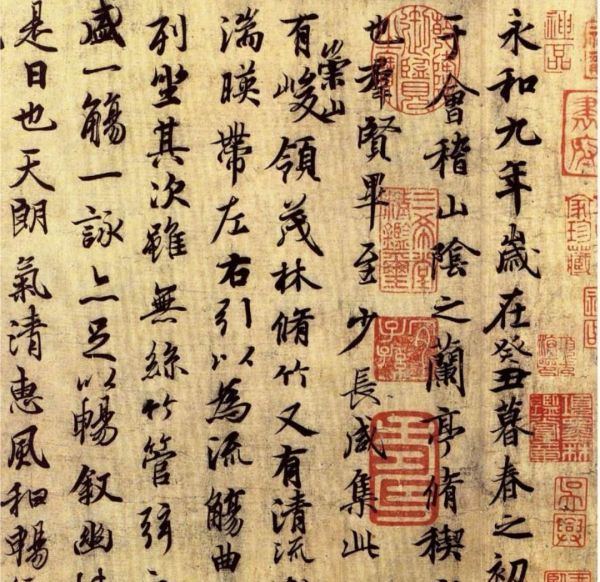 永和九年歲在癸丑暮春之初
于會稽山陰之蘭亭脩稧
也羣賢畢至少長咸集此
有崇山峻領茂林脩竹又有清流
湍暎帶左右引以為流觴曲
列坐其次雖無絲竹管弦
盛一觴一詠亦足以暢叙幽
是日也天朗氣清惠風和暢
神品
書府
家珍藏
三希堂精鑑璽
宜子孫
吳興